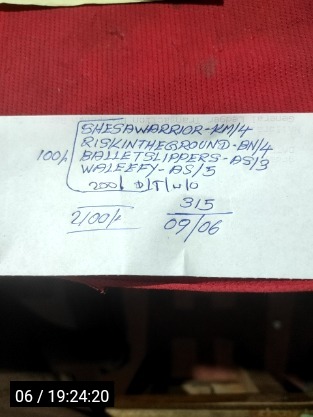 SHESAWARRIOR-KM/4
RISKINTHEGROUND-BN/4
100/- BALLETSLIPPERS-AS/3
WALEEFY-AS/5
200/- D/T/U/O
2/00/- 315
09/06
06 / 19:24:20